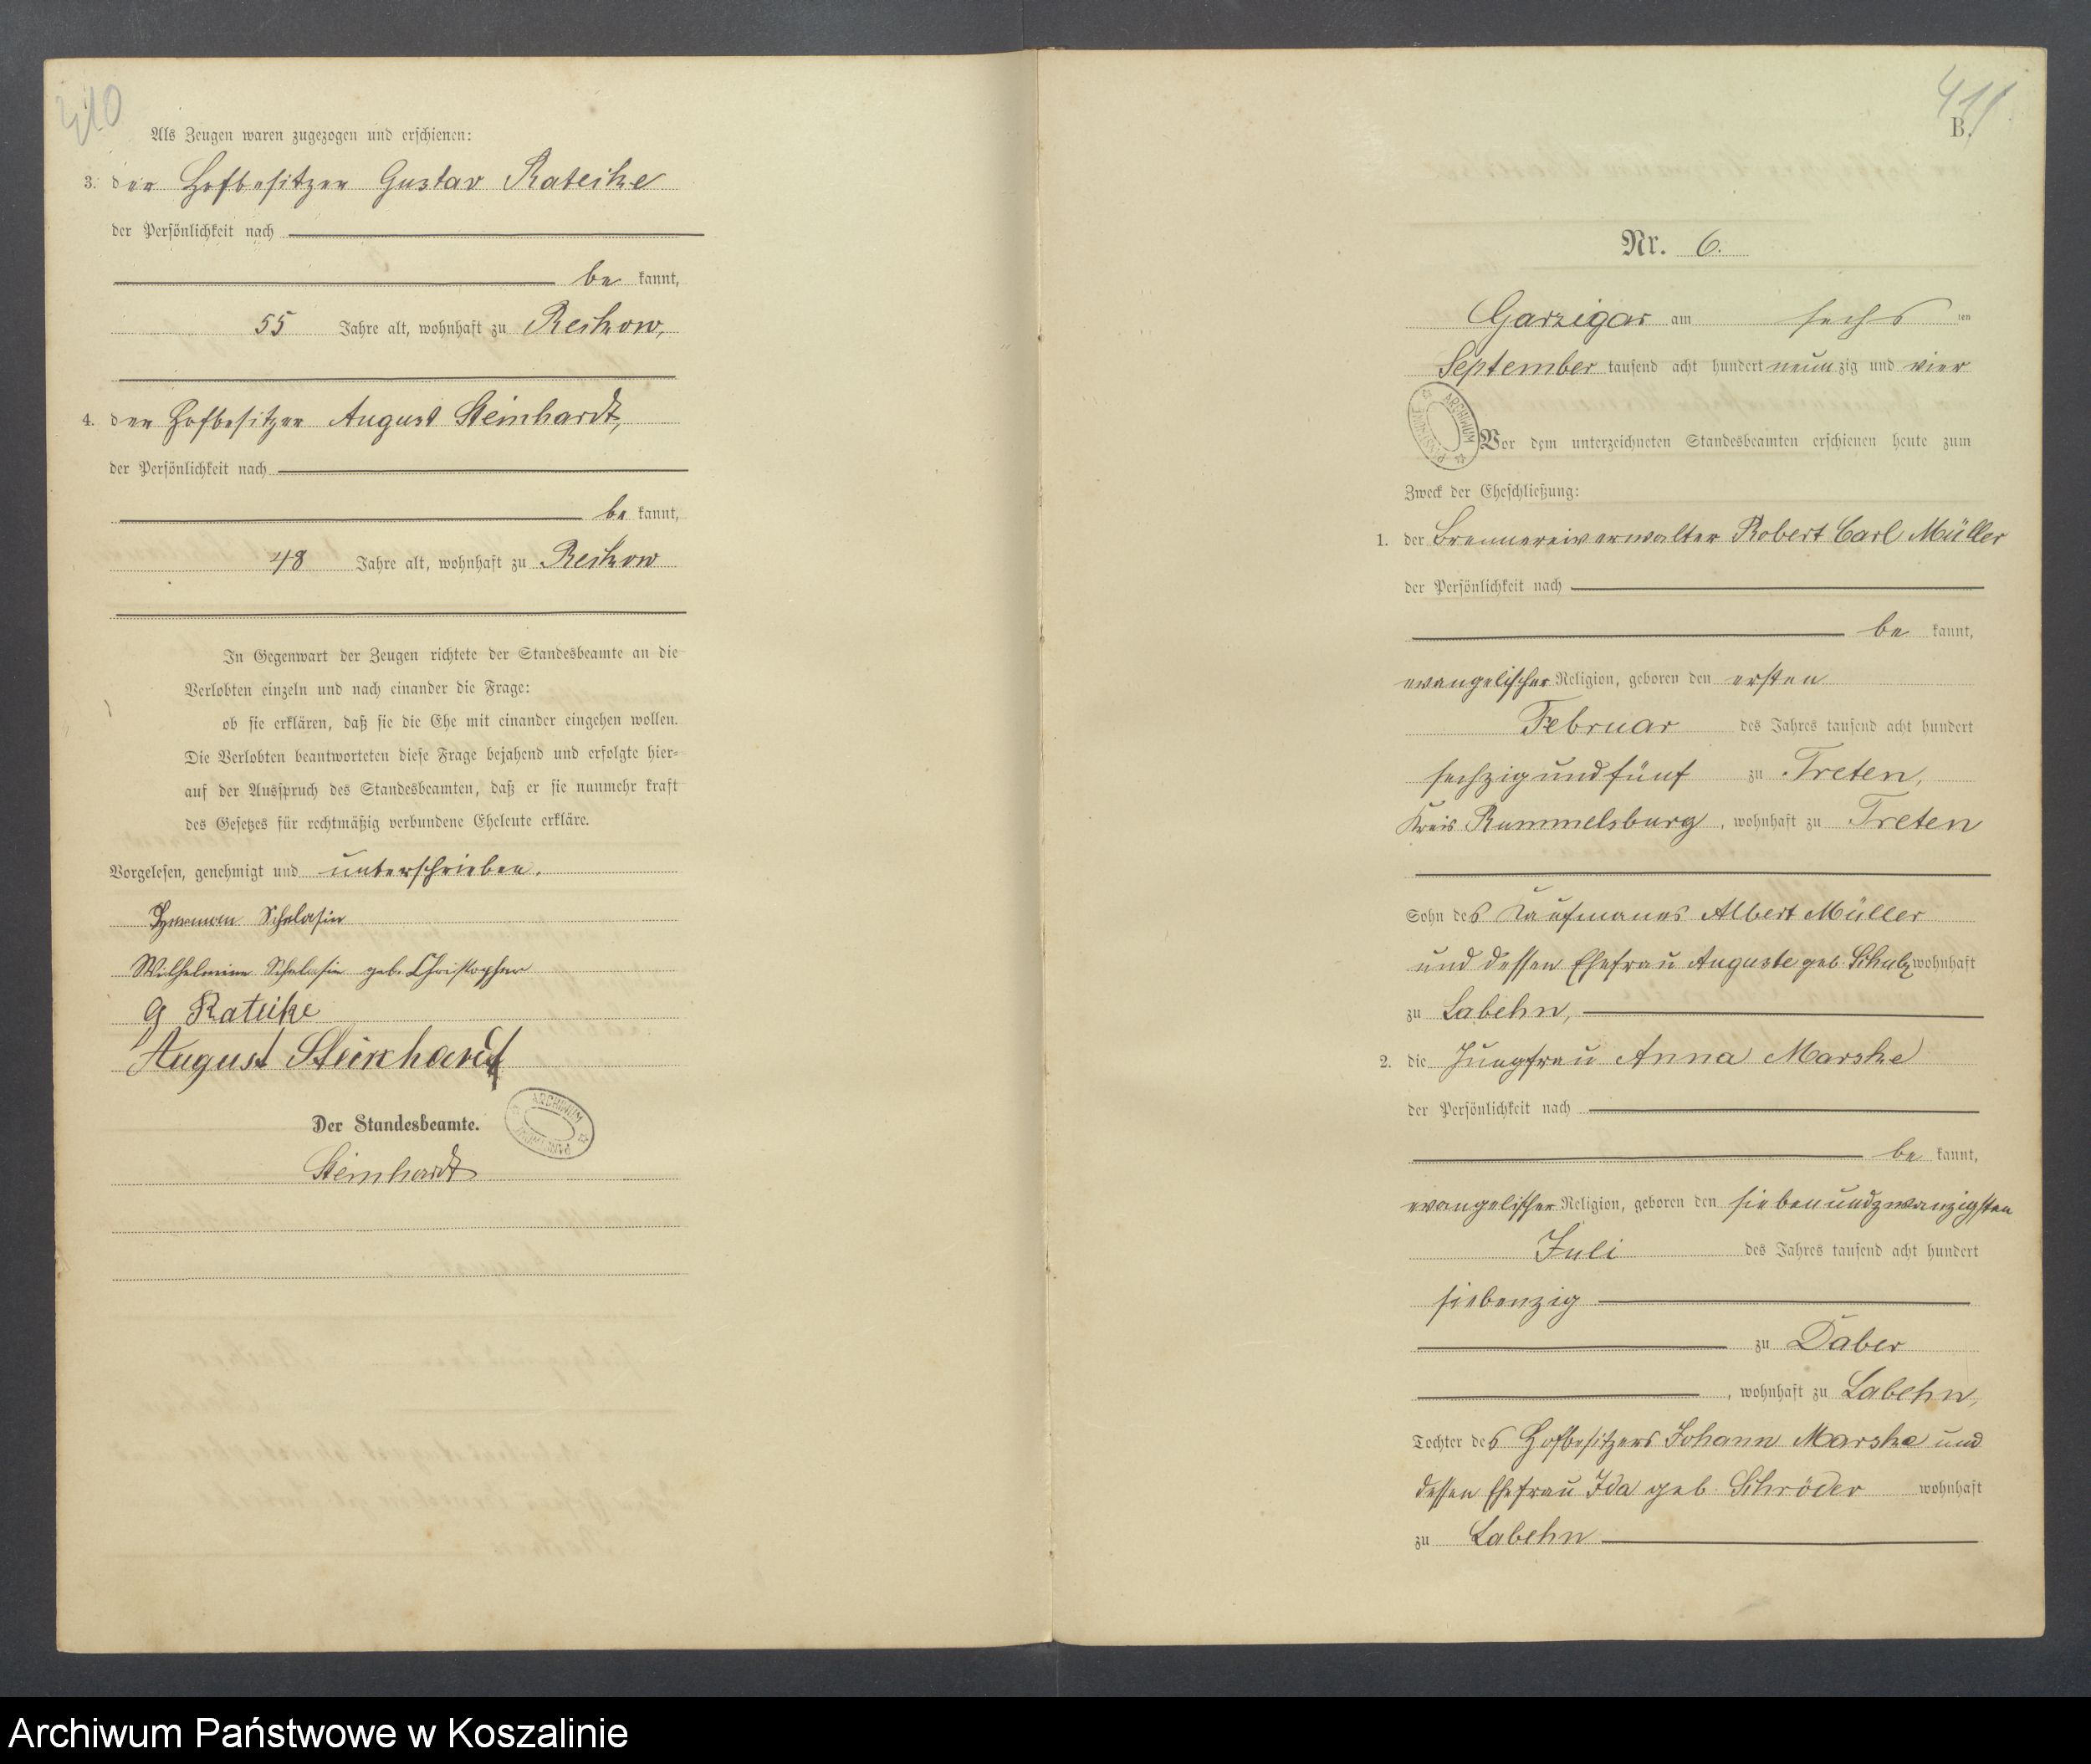 410
Als Zeugen waren zugezogen und erschienen:
3. der Hofbesitzer Gustav Rateike
der Persönlichkeit nach
be kannt,
55 Jahre alt, wohnhaft zu Reskow,
4. der Hofbesitzer August Steinhardt,
der Persönlichkeit nach
be kannt,
48 Jahre alt, wohnhaft zu Reskow
In Gegenwart der Zeugen richtete der Standesbeamte an die
Verlobten einzeln und nach einander die Frage:
ob sie erklären, daß sie die Ehe mit einander eingehen wollen.
Die Verlobten beantworteten diese Frage bejahend und erfolgte hier-
auf der Ausspruch des Standesbeamten, daß er sie nunmehr kraft
des Gesetzes für rechtmäßig verbundene Eheleute erkläre.
Vorgelesen, genehmigt und unterschrieben.
Herrmann Schelasin
Wilhelmine Schelasin geb. Christopher
G Rateike
August Steinhardt
Der Standesbeamte.
ARCHIWUM PAŃSTWOWE
Steinhardt
411
B.
Nr. 6.
Garzigar am sechs ten
September tausend acht hundert neunzig und vier
ARCHIWUM PAŃSTWOWE
Vor dem unterzeichneten Standesbeamten erschienen heute zum
Zweck der Eheschließung:
1. der Brennereiverwalter Robert Carl Müller
der Persönlichkeit nach
be kannt,
evangelischer Religion, geboren den ersten
Februar des Jahres tausend acht hundert
sechzig und fünf zu Treten,
Kreis Rummelsburg, wohnhaft zu Treten
Sohn des Kaufmanns Albert Müller
und dessen Ehefrau Auguste geb. Schulz wohnhaft
zu Labehn,
2. die Jungfrau Anna Marske
der Persönlichkeit nach
be kannt,
evangelischer Religion, geboren den siebenundzwanzigsten
Juli des Jahres tausend acht hundert
siebenzig
zu Daber
, wohnhaft zu Labehn,
Tochter des Hofbesitzers Johann Marske und
dessen Ehefrau Ida geb. Schröder wohnhaft
zu Labehn
Archiwum Państwowe w Koszalinie